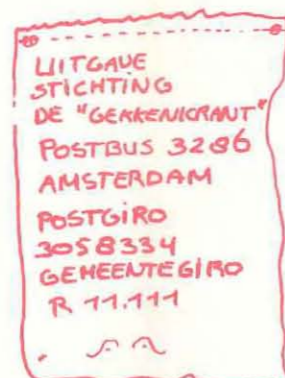 UITGAVE
STICHTING
DE "GEKKENKRANT"
POSTBUS 3286
AMSTERDAM
POSTGIRO
3058334
GEMEENTEGIRO
R 11.111